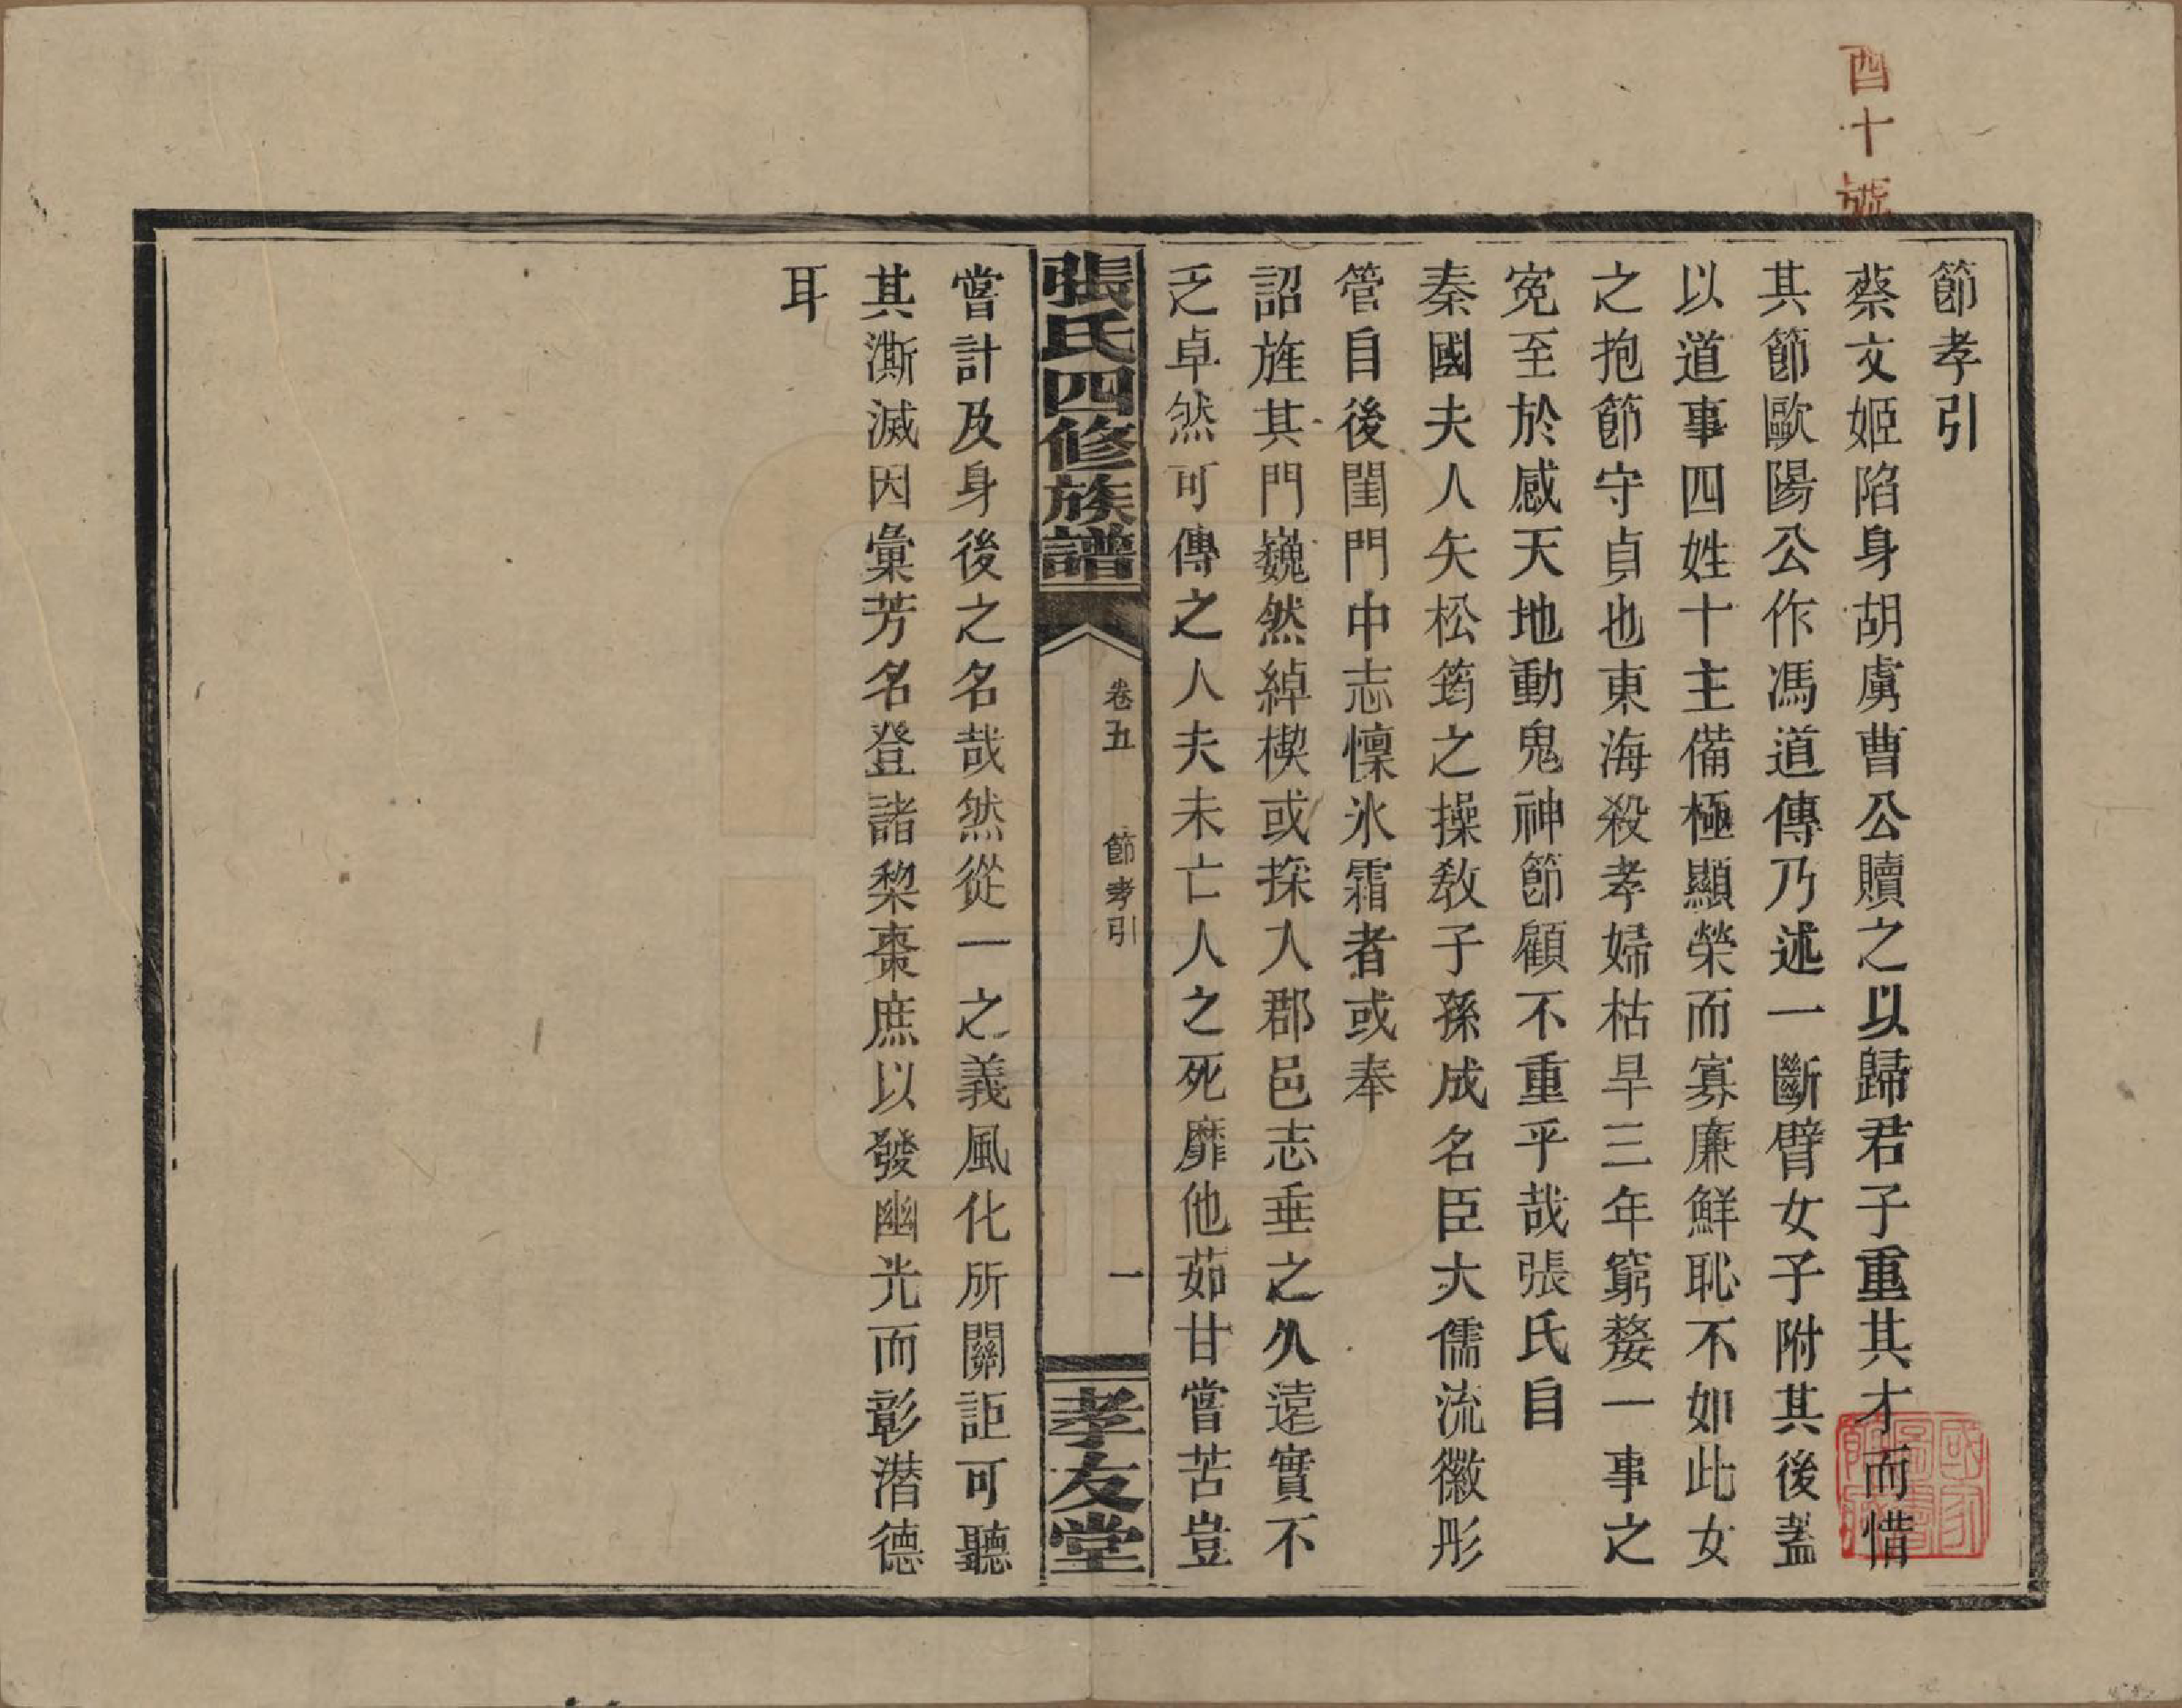 酉十號
節孝引
蔡文姬陷身胡虜曹公贖之以歸君子重其才而惜
其節歐陽公作馮道傳乃述一斷臂女子附其後蓋
以道事四姓十主備極顯榮而寡廉鮮恥不如此女
之抱節守貞也東海殺孝婦枯旱三年窮嫠一事之
寃至於感天地動鬼神節顧不重乎哉張氏自
秦國夫人矢松筠之操教子孫成名臣大儒流徽彤
管自後閨門中志懍氷霜者或奉
詔旌其門巍然綽楔或採入郡邑志垂之久遠實不
乏卓然可傳之人夫未亡人之死靡他茹甘嘗苦豈
張氏四修族譜
卷五 節孝引 一
孝友堂
嘗計及身後之名哉然從一之義風化所關詎可聽
其澌滅因彙芳名登諸梨棗庶以發幽光而彰潛德
耳
國家圖書館藏